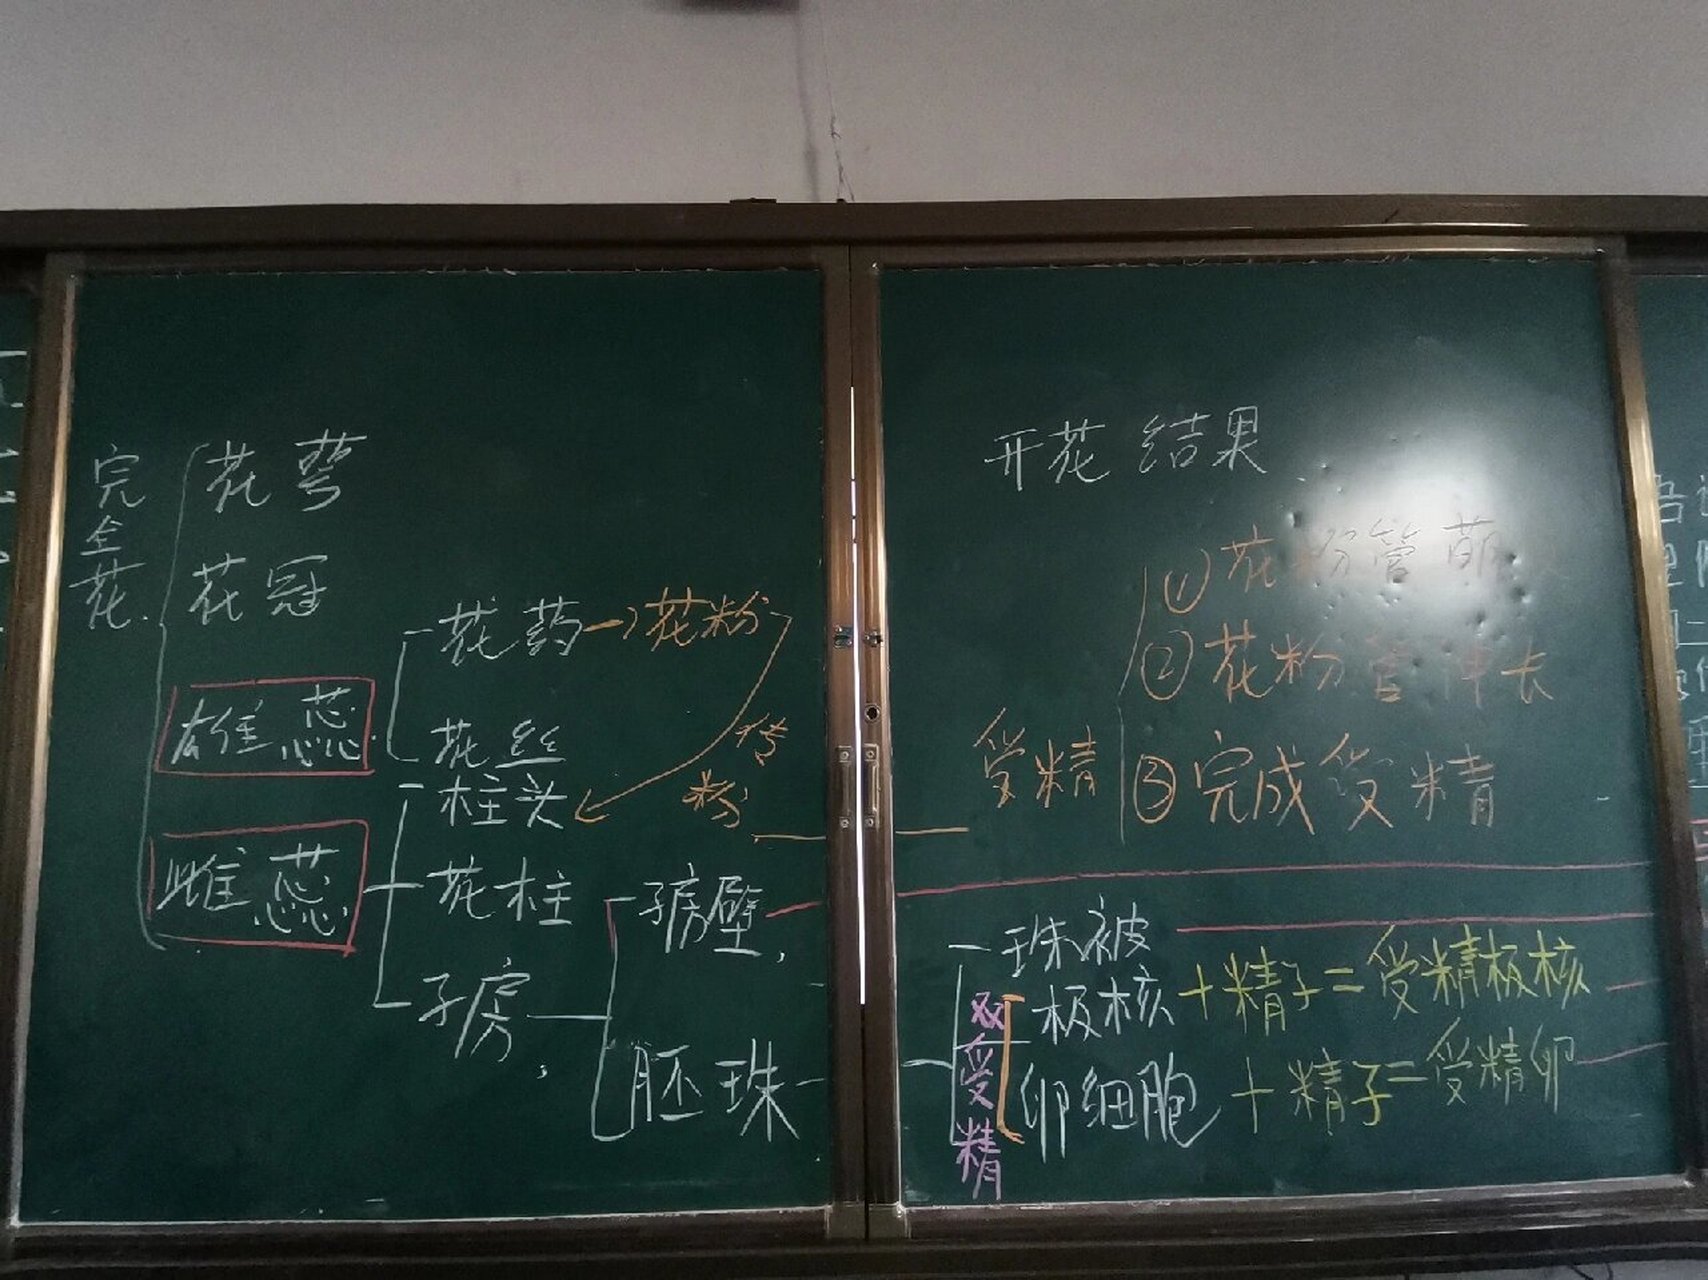 完全花
花萼
花冠
雄蕊
花药→花粉
花丝
传粉
雌蕊
柱头
花柱
子房
子房壁
胚珠
开花 结果
受精
①花粉管萌
②花粉管伸长
③完成受精
珠被
双受精
极核+精子=受精极核
卵细胞+精子=受精卵